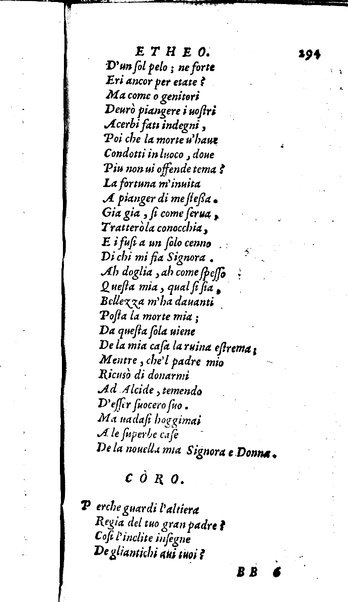 ETHEO. 294
D'un sol pelo; ne forte
Eri ancor per etate?
Ma come o genitori
Deurò piangere i uostri
Acerbi fati indegni,
Poi che la morte u'haue
Condotti in luoco, doue
Piu non ui offende tema?
La fortuna m'inuita
A pianger di me stessa.
Gia gia, si come serua,
Tratterò la conocchia,
E i fusi a un solo cenno
Di chi mi fia Signora.
Ah doglia, ah come spesso
Questa mia, qual si sia,
Bellezza m'ha dauanti
Posta la morte mia;
Da questa sola uiene
De la mia casa la ruina estrema;
Mentre, che'l padre mio
Ricusò di donarmi
Ad Alcide, temendo
D'esser suocero suo.
Ma uadasi hoggimai
A le superbe case
De la nouella mia Signora e Donna.
CÒRO.
Perche guardi l'altiera
Regia del tuo gran padre?
Cosi l'inclite insegne
De gliantichi aui tuoi?
BB 6